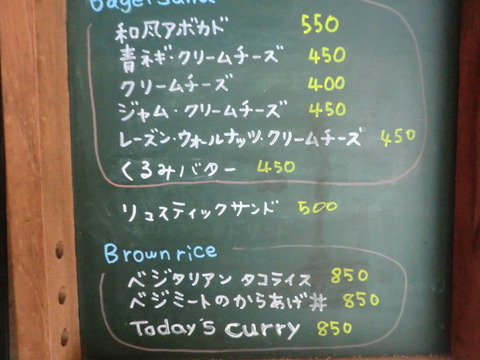 Bagel Sand
和風アボカド 550
青ネギ・クリームチーズ 450
クリームチーズ 400
ジャム・クリームチーズ 450
レーズン・ウォールナッツ・クリームチーズ 450
くるみバター 450
リュスティックサンド 500
Brown rice
ベジタリアン タコライス 850
ベジミートのからあげ丼 850
Today's curry 850